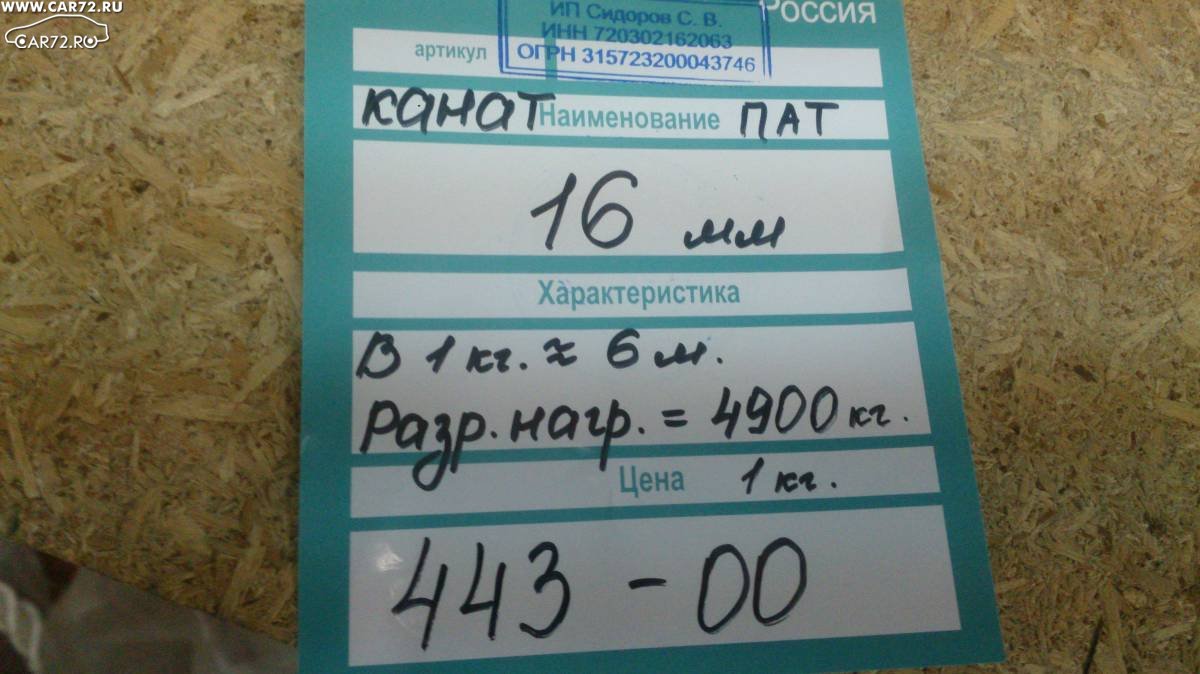 WWW.CAR72.RU
CAR72.RU
Россия
ИП Сидоров С. В.
ИНН 720302162063
ОГРН 315723200043746
артикул
КАНАТ Наименование ПАТ
16 мм
Характеристика
В 1 кг. ≈ 6 м.
Разр. нагр. = 4900 кг.
Цена 1 кг.
443 - 00